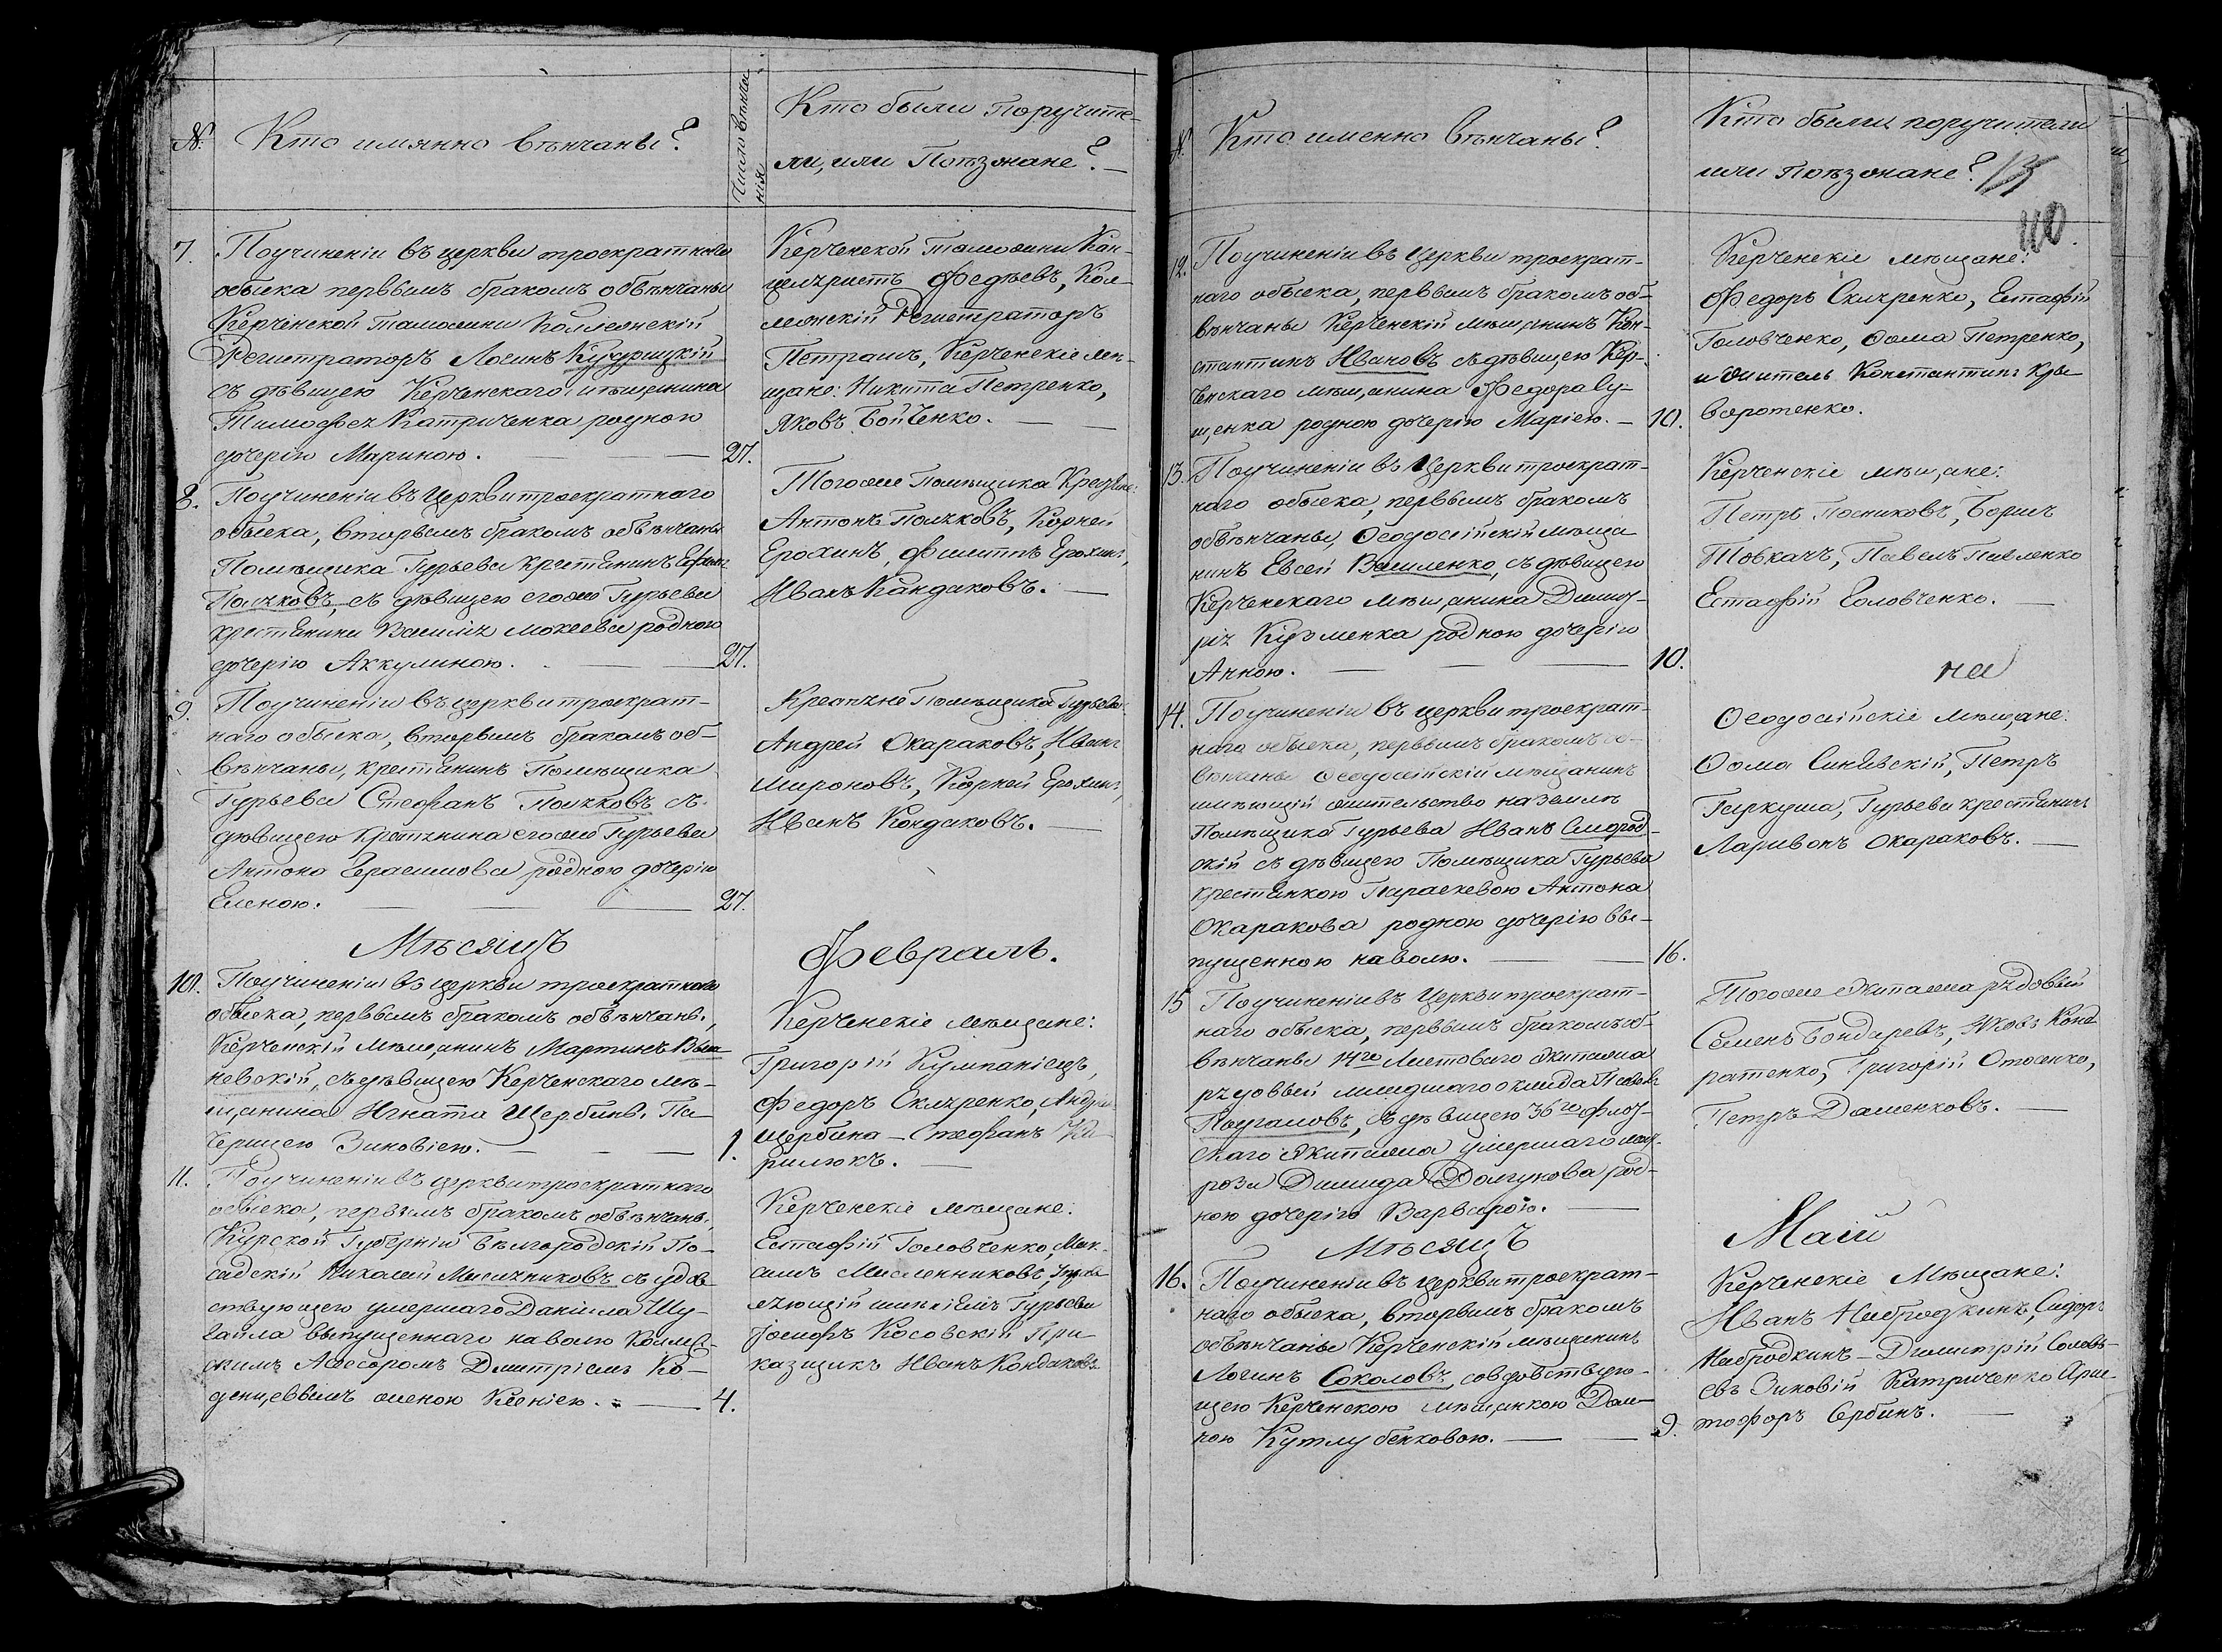 №
Кто имянно вѣнчаны?
Число вѣнча
нія
Кто были Поручите-
ли, или Поѣзжане? —
7. Поучиненіи въ церкви троекратнаго
обыска первымъ бракомъ обвѣнчаны
Керченской таможни Коллежскій
Регистраторъ Логинъ Кудрицкій
съ дѣвицею Керченскаго мѣщанина
Тимофея Катриченка родною
дочерію Мариною. — 27.
Керченской таможни Кан-
целяристъ Федѣевъ, Кол-
лежскій Регистраторъ
Петрашъ, Керченскіе мѣ-
щане: Никита Петренко,
Яковъ Бойченко. —
8. Поучиненіи въ Церкви троекратнаго
обыска, вторымъ бракомъ обвѣнчаны
Помѣщика Гурьева крестьянинъ
Полчковъ, съ дѣвицею егоже Гурьева
крестьянина Василія Мокеева родною
дочерію Аккулиною. — 27.
Тогоже Помѣщика
Антонъ Полчковъ, Корней
Ерохинъ, Филиппъ Ерохинъ,
Иванъ Кандаковъ. —
9. Поучиненіи въ церкви троекрат-
наго обыска, вторымъ бракомъ об-
вѣнчаны, крестьянинъ Помѣщика
Гурьева Стефанъ Полчковъ съ
дѣвицею крестянина егоже Гурьева
Антона Герасимова родною дочерію
Еленою. — 27.
Крестяне Помѣщика Гурьева:
Андрей Окараковъ, Иванъ
Мироновъ, Корней Ерохинъ,
Иванъ Кондаковъ. —
Мѣсяцъ Февраль.
10. Поучиненіи въ церкви троекратнаго
обыска, первымъ бракомъ обвѣнчаны,
Керченскій Мѣщанинъ Мартинъ
невскій, съ дѣвицею Керченскаго мѣ-
щанина Игната Щербины Па-
черицею Зиновіею. — 1.
Керченскіе мѣщане:
Григорій Кумпаніецъ,
Федоръ Скляренко, Андрей
Щербина — Стефанъ Ки-
рилюкъ. —
11. Поучиненіи въ церкви троекратнаго
обыска, первымъ бракомъ обвѣнчаны,
Курской Губерніи Бѣлгородскій По-
садскій Николай Мясичниковъ, съ вдов-
ствующею умершаго Даніила Шу-
гайла выпущеннаго на волю Коллеж-
скимъ Асессоромъ Дмитріемъ Ко-
денцевымъ женою Ксеніею. — 4.
Керченскіе мѣщане:
Естафій Головченко, Мак-
симъ Масленниковъ, Управ-
ляющій имѣніемъ Гурьева
Іосифъ Косовскій При-
казщикъ Иванъ Кондаковъ.
№
Кто именно вѣнчаны?
Кто были поручители
или поѣзжане?
110.
12. Поучиненіи въ Церкви троекрат-
наго обыска, первымъ бракомъ об-
вѣнчаны Керченскій мѣщанинъ Кон-
стантинъ Ивановъ съ дѣвицею Кер-
ченскаго мѣщанина Федора Су-
щенка родною дочерію Маріею. — 10.
Керченскіе мѣщане:
Федоръ Скляренко, Естафій
Головченко, Фома Петренко,
и житель Константинъ Кри-
воротенко.
13. Поучиненіи въ Церкви троекрат-
наго обыска, первымъ бракомъ
обвѣнчаны, Феодосійскій мѣща
нинъ Евсей Василенко, съ дѣвицею
Керченскаго мѣщанина Димит-
рія Кузменка родною дочерію
Анною. — 10.
Керченскіе мѣщане:
Петръ Посниковъ, Борисъ
Товкачъ, Павелъ Павленко
Естафій Головченко. —
на
14. Поучиненіи въ церкви троекрат-
наго обыска, первымъ бракомъ об-
вѣнчаны Феодосійскій мѣщанинъ
имѣющій жительство на землѣ
Помѣщика Гурьева Иванъ Смород-
скій съ дѣвицею Помѣщика Гурьева
крестьянкою Параскевою Антона
Окаракова родною дочерію вы-
пущенною на волю. — 16.
Феодосійскіе мѣщане:
Фома Синявскій, Петръ
Гаркуша, Гурьева крестьянинъ
Ларивонъ Окараковъ. —
15 Поучиненіи въ Церкви троекрат-
наго обыска, первымъ бракомъ об-
вѣнчаны 14го Ластоваго Экипажа
рядовый младшаго оклада
Поугаловъ, съ дѣвицею 36го флот-
скаго Экипажа умершаго мат-
роза Димида Долгунова род-
ною дочерію Варварою. —
Тогоже Экипажа рядовые
Семенъ Бондаревъ, Яковъ Конд
ратенко, Григорій
Петръ Даменковъ. —
Мѣсяцъ Маій
16. Поучиненіи въ церкви троекрат-
наго обыска, вторымъ бракомъ
обвѣнчаны Керченскій мѣщанинъ
Логинъ Соколовъ, со вдовствую-
щею Керченскою мѣщанкою Дом-
ною Кутлубенковою. — 9.
Керченскіе Мѣщане:
Иванъ Набродкинъ, Сидоръ
Набродкинъ — Димитрій Соловь-
евъ Зиновій Катриченко Хрис-
тофоръ Сербинъ. —